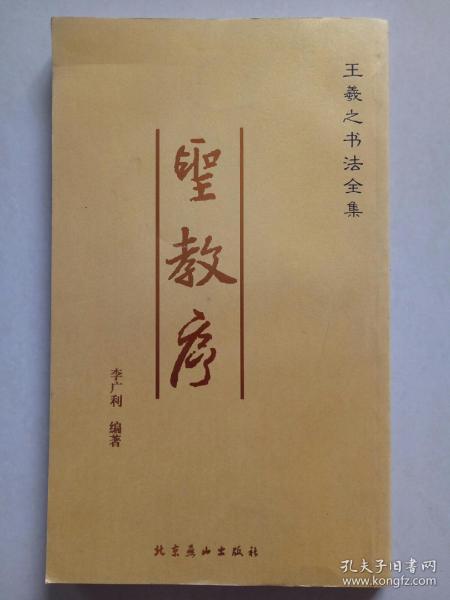 王羲之书法全集
聖教序
李广利 编著
北京燕山出版社
孔夫子旧书网
www.kongfz.com